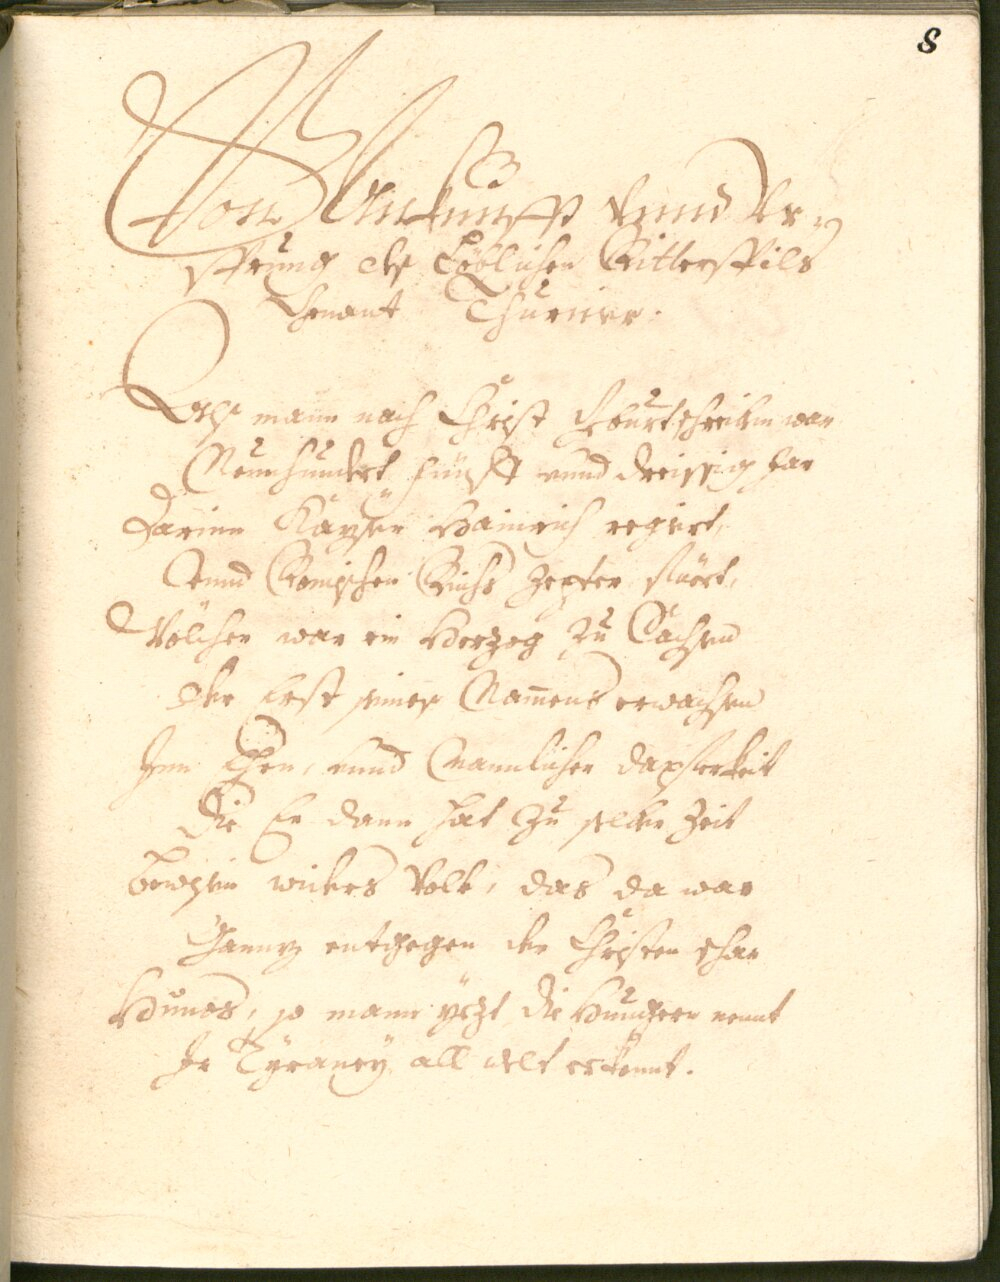 8
Von Ankunfft vnnd Vr-
sprung des Löblichen Ritterspils
Genant Thurnier.
Als mann nach Christ geburt schreiben war
Neunhundert fünfft vnnd dreissig Jar
Darinn Kayser Hainrich regiert,
vnnd Römischen Reichs Zepter füert,
Wölcher war ein Herzog zu Sachsen
der Erst seines Nammens erwachsen
Inn Ehrn, vnnd Mannlicher dapferkeit
die Er dann hat zu selber Zeit
bewisen widers Volk, das da war
Ganntz entgegen der Christen schar
Hunos, so mann yetzt die Hungern nennt
Ir Tyraney all welt erkennt.